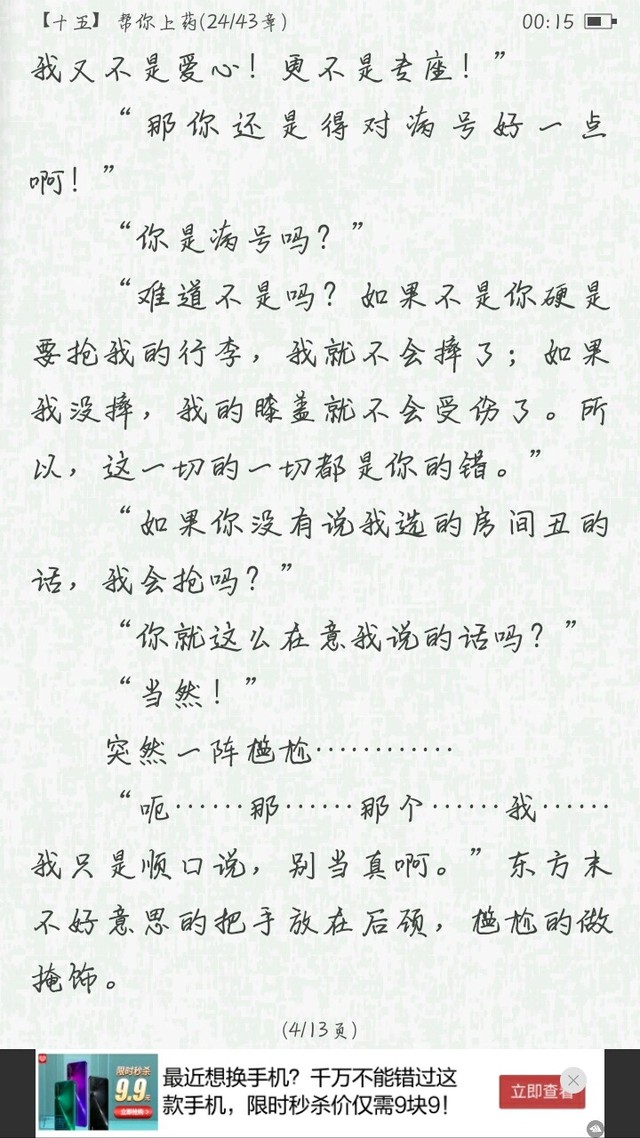 【十五】帮你上药(24/43章) 00:15
我又不是爱心！更不是专座！”
“那你还是得对病号好一点
啊！”
“你是病号吗？”
“难道不是吗？如果不是你硬是
要抢我的行李，我就不会摔了；如果
我没摔，我的膝盖就不会受伤了。所
以，这一切的一切都是你的错。”
“如果你没有说我选的房间丑的
话，我会抢吗？”
“你就这么在意我说的话吗？”
“当然！”
突然一阵尴尬…………
“呃……那……那个……我……
我只是顺口说，别当真啊。”东方末
不好意思的把手放在后颈，尴尬的做
掩饰。
(4/13页)
限时秒杀
9.9元
最近想换手机？千万不能错过这
款手机，限时秒杀价仅需9块9！
立即查看